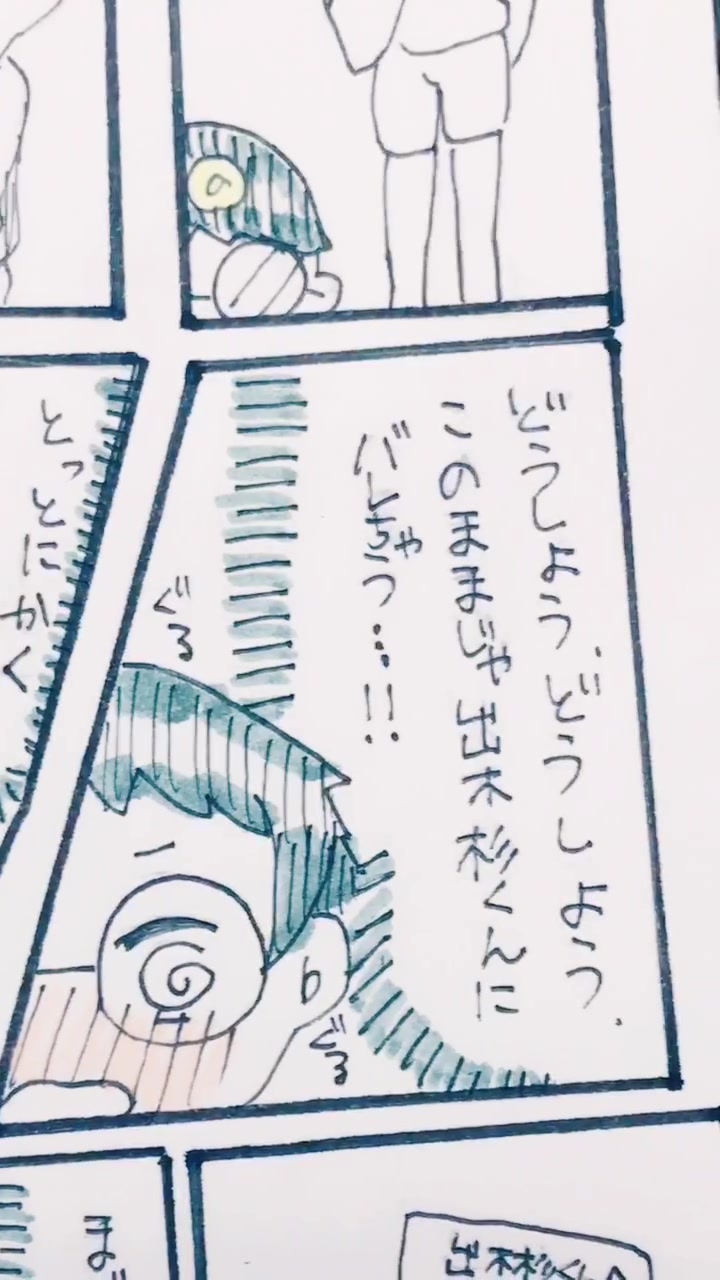 どうしよう、どうしよう、
このままじゃ出木杉くんに
バレちゃう…!!
ぐる
ぐる
とっとにかく
出木杉くん
まど